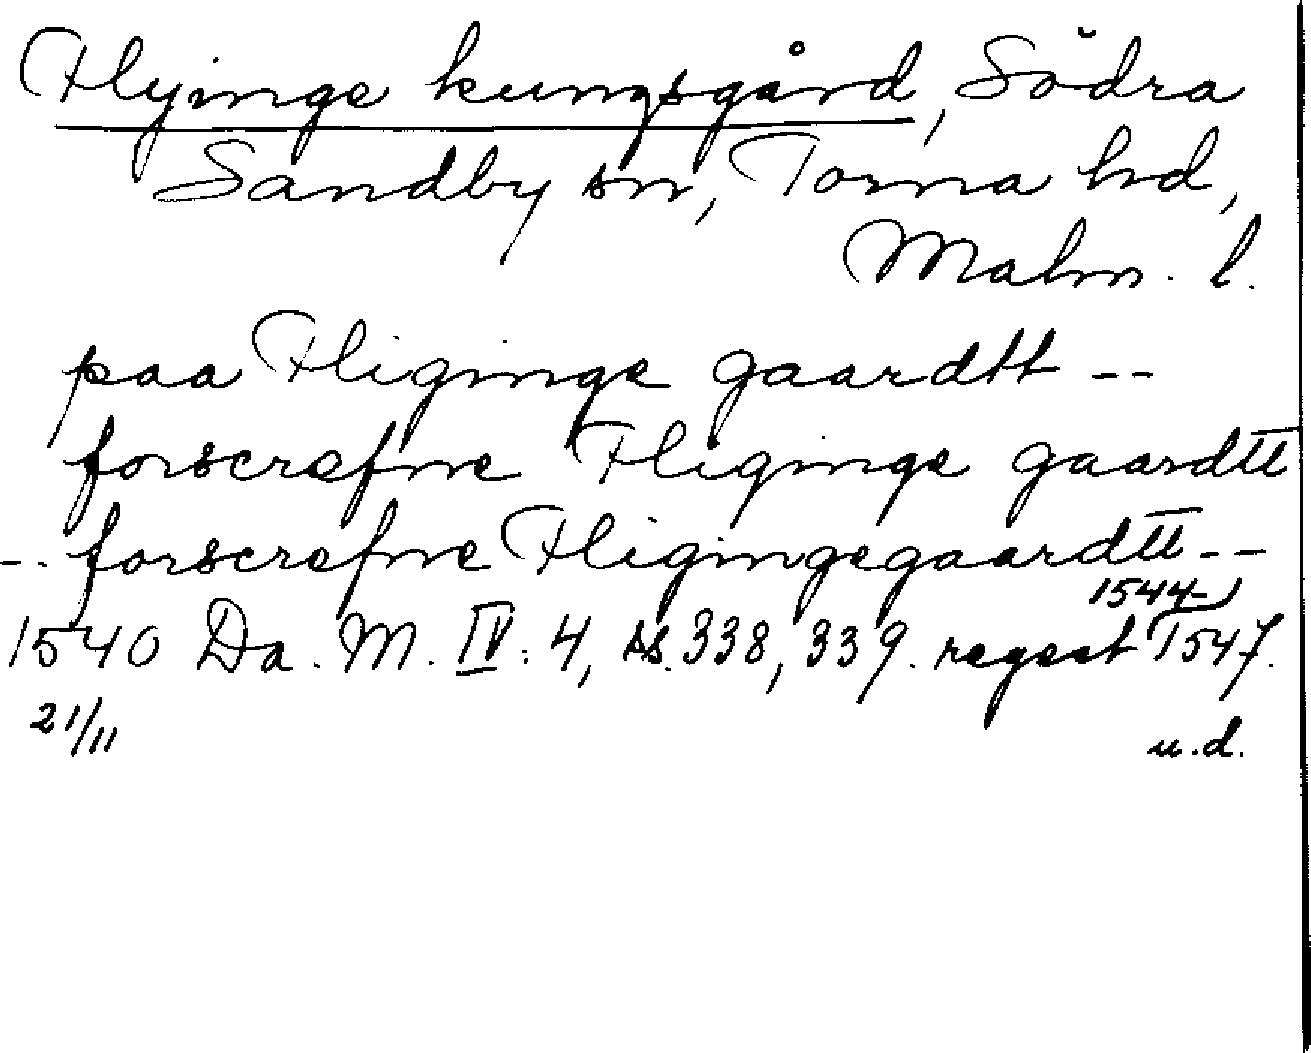 Flyinge kungsgård, Södra
Sandby sn, Torna hd,
Malm. l.
paa Fliginge gaardtt --
forscrefne Fliginge gaardtt
-- forscrefne Fligingegaardtt --
1544-
1540 Da. M. IV: 4, ss. 338, 339. regest 1547.
21/11 u.d.